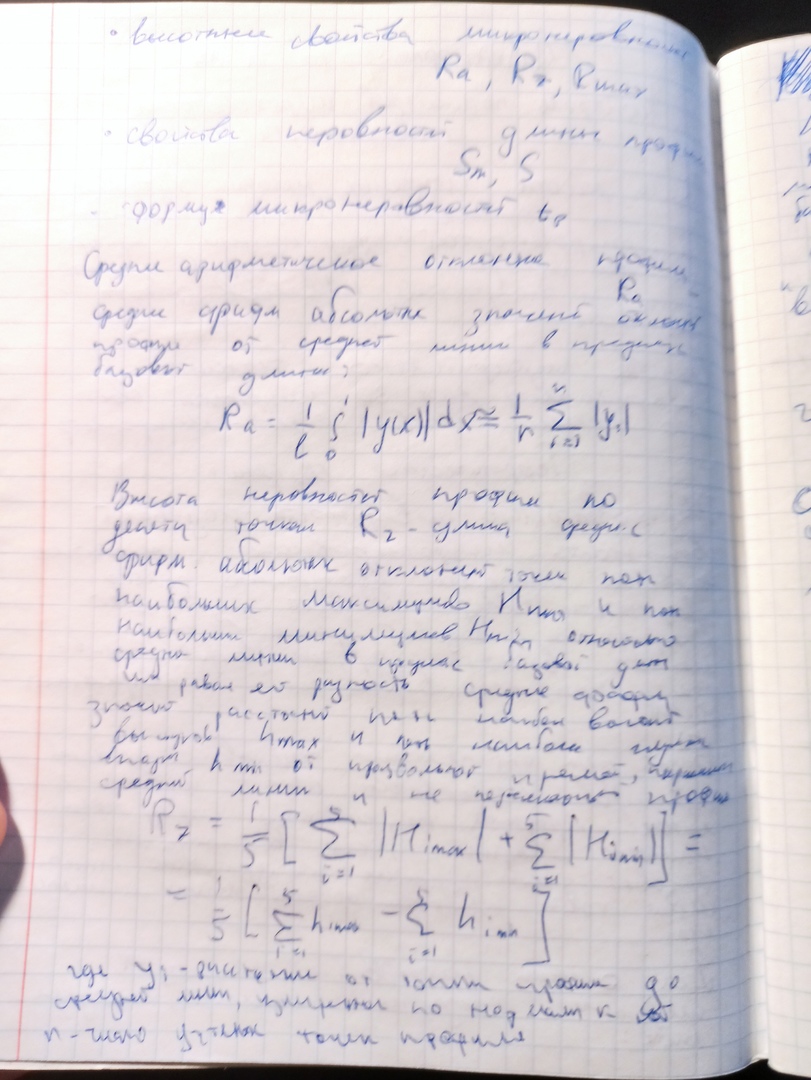 • высотные свойства микронеровностей
Ra, Rz, Rmax
• свойства неровностей длины профиля
Sm, S
- форму микронеровностей tp
Средне арифметическое отклонение профиля
Ra
средне арифм абсолютн значений отклонен
профиля от средней линии в пределах
базовой длины:
Ra = 1/l ∫₀ˡ |y(x)| dx ≈ 1/n Σ_{i=1}^{n} |yi|
Высота неровностей профиля по
десяти точкам Rz - средне
арифм. абсолютн отклонений точек
наибольших максимумов Hmax и
наибольших минимумов Hmin относительно
средней линии в пределах базовой длин
разность средне арифм
значений расстояний наибол
выступов hmax и наиболее глубок
впадин hmin от произвольной прямой,
средней линии и не пересекающ профиль
Rz = 1/5 [ Σ_{i=1}^{5} |Himax| + Σ_{i=1}^{5} |Himin| ] =
= 1/5 [ Σ_{i=1}^{5} himax - Σ_{i=1}^{5} himin ]
где yi - расстояние от точки профиля до
средней линии,
n - число точек профиля